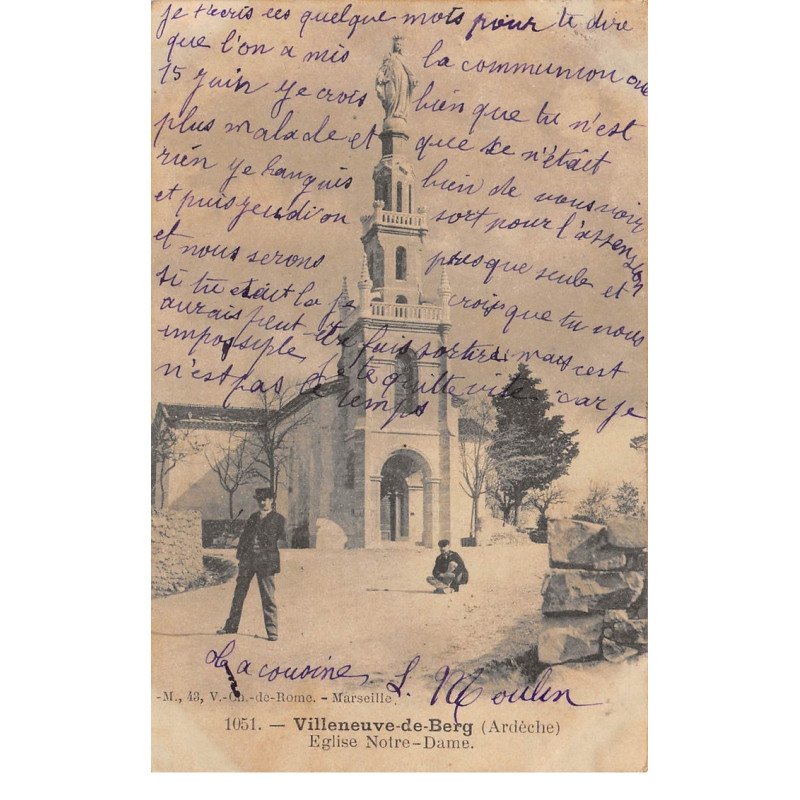 je t'ecris ces quelque mots pour te dire
que l'on a mis la communion au
15 juin je crois bien que tu n'est
plus malade et que se n'êtait
rien je languis bien de vous voir
et puis jeudi on sort pour l'assension
et nous serons presque seule et
si tu etait la je crois que tu nous
aurais peut faire sortir mais c'est
impossible je te quitte vite car je
n'est pas le temps
Ta cousine, L. Moulin
-M., 43, V.-Ch.-de-Rome. - Marseille.
1051. — Villeneuve-de-Berg (Ardèche)
Eglise Notre-Dame.